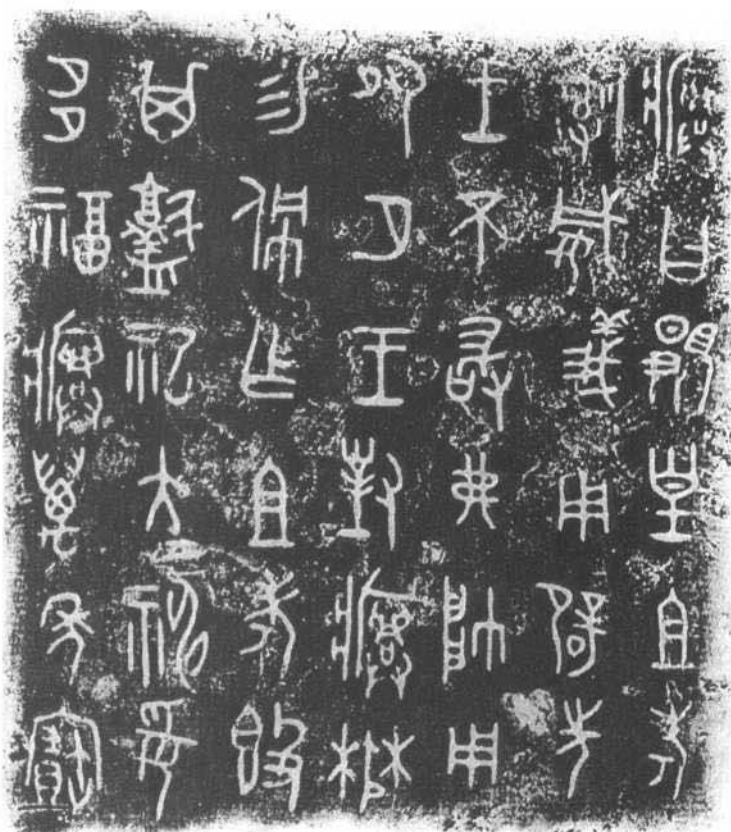 㾓曰覭皇且考
司威義用辟先
王不敢弗帥用
夙夕王對㾓楙
易佩乍且考𣪘
其祀大神妥
多福㾓萬年寶